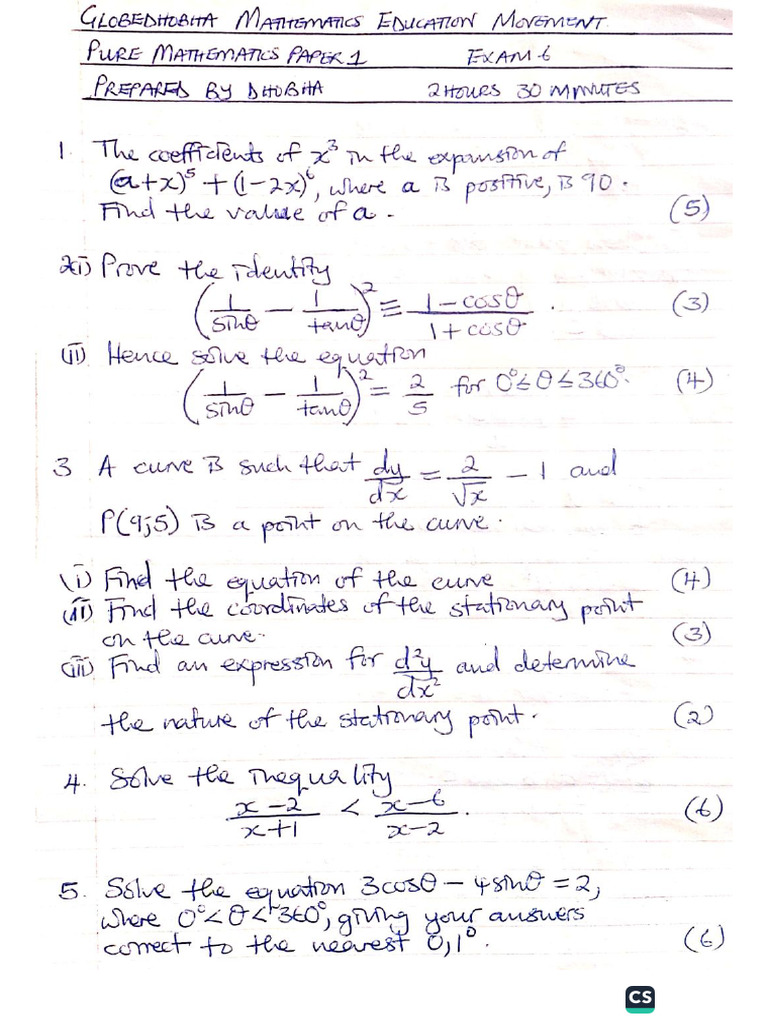 GLOBEDHOBHA MATHEMATICS EDUCATION MOVEMENT.
PURE MATHEMATICS PAPER 1 EXAM-6
PREPARED BY DHOBHA 2HOURS 30 MINUTES
1. The coefficients of x³ in the expansion of
(a+x)⁵ + (1-2x)⁶, where a is positive, is 90.
Find the value of a. (5)
2i) Prove the identity
(1/sinθ − 1/tanθ)² ≡ (1−cosθ)/(1+cosθ). (3)
(ii) Hence solve the equation
(1/sinθ − 1/tanθ)² = 2/5 for 0°≤θ≤360°. (4)
3 A curve is such that dy/dx = 2/√x − 1 and
P(9;5) is a point on the curve.
(i) Find the equation of the curve (4)
(ii) Find the coordinates of the stationary point
on the curve. (3)
(iii) Find an expression for d²y/dx² and determine
the nature of the stationary point. (2)
4. Solve the inequality
(x−2)/(x+1) < (x−6)/(x−2). (6)
5. Solve the equation 3cosθ − 4sinθ = 2,
where 0°<θ<360°, giving your answers
correct to the nearest 0,1°. (6)
CS